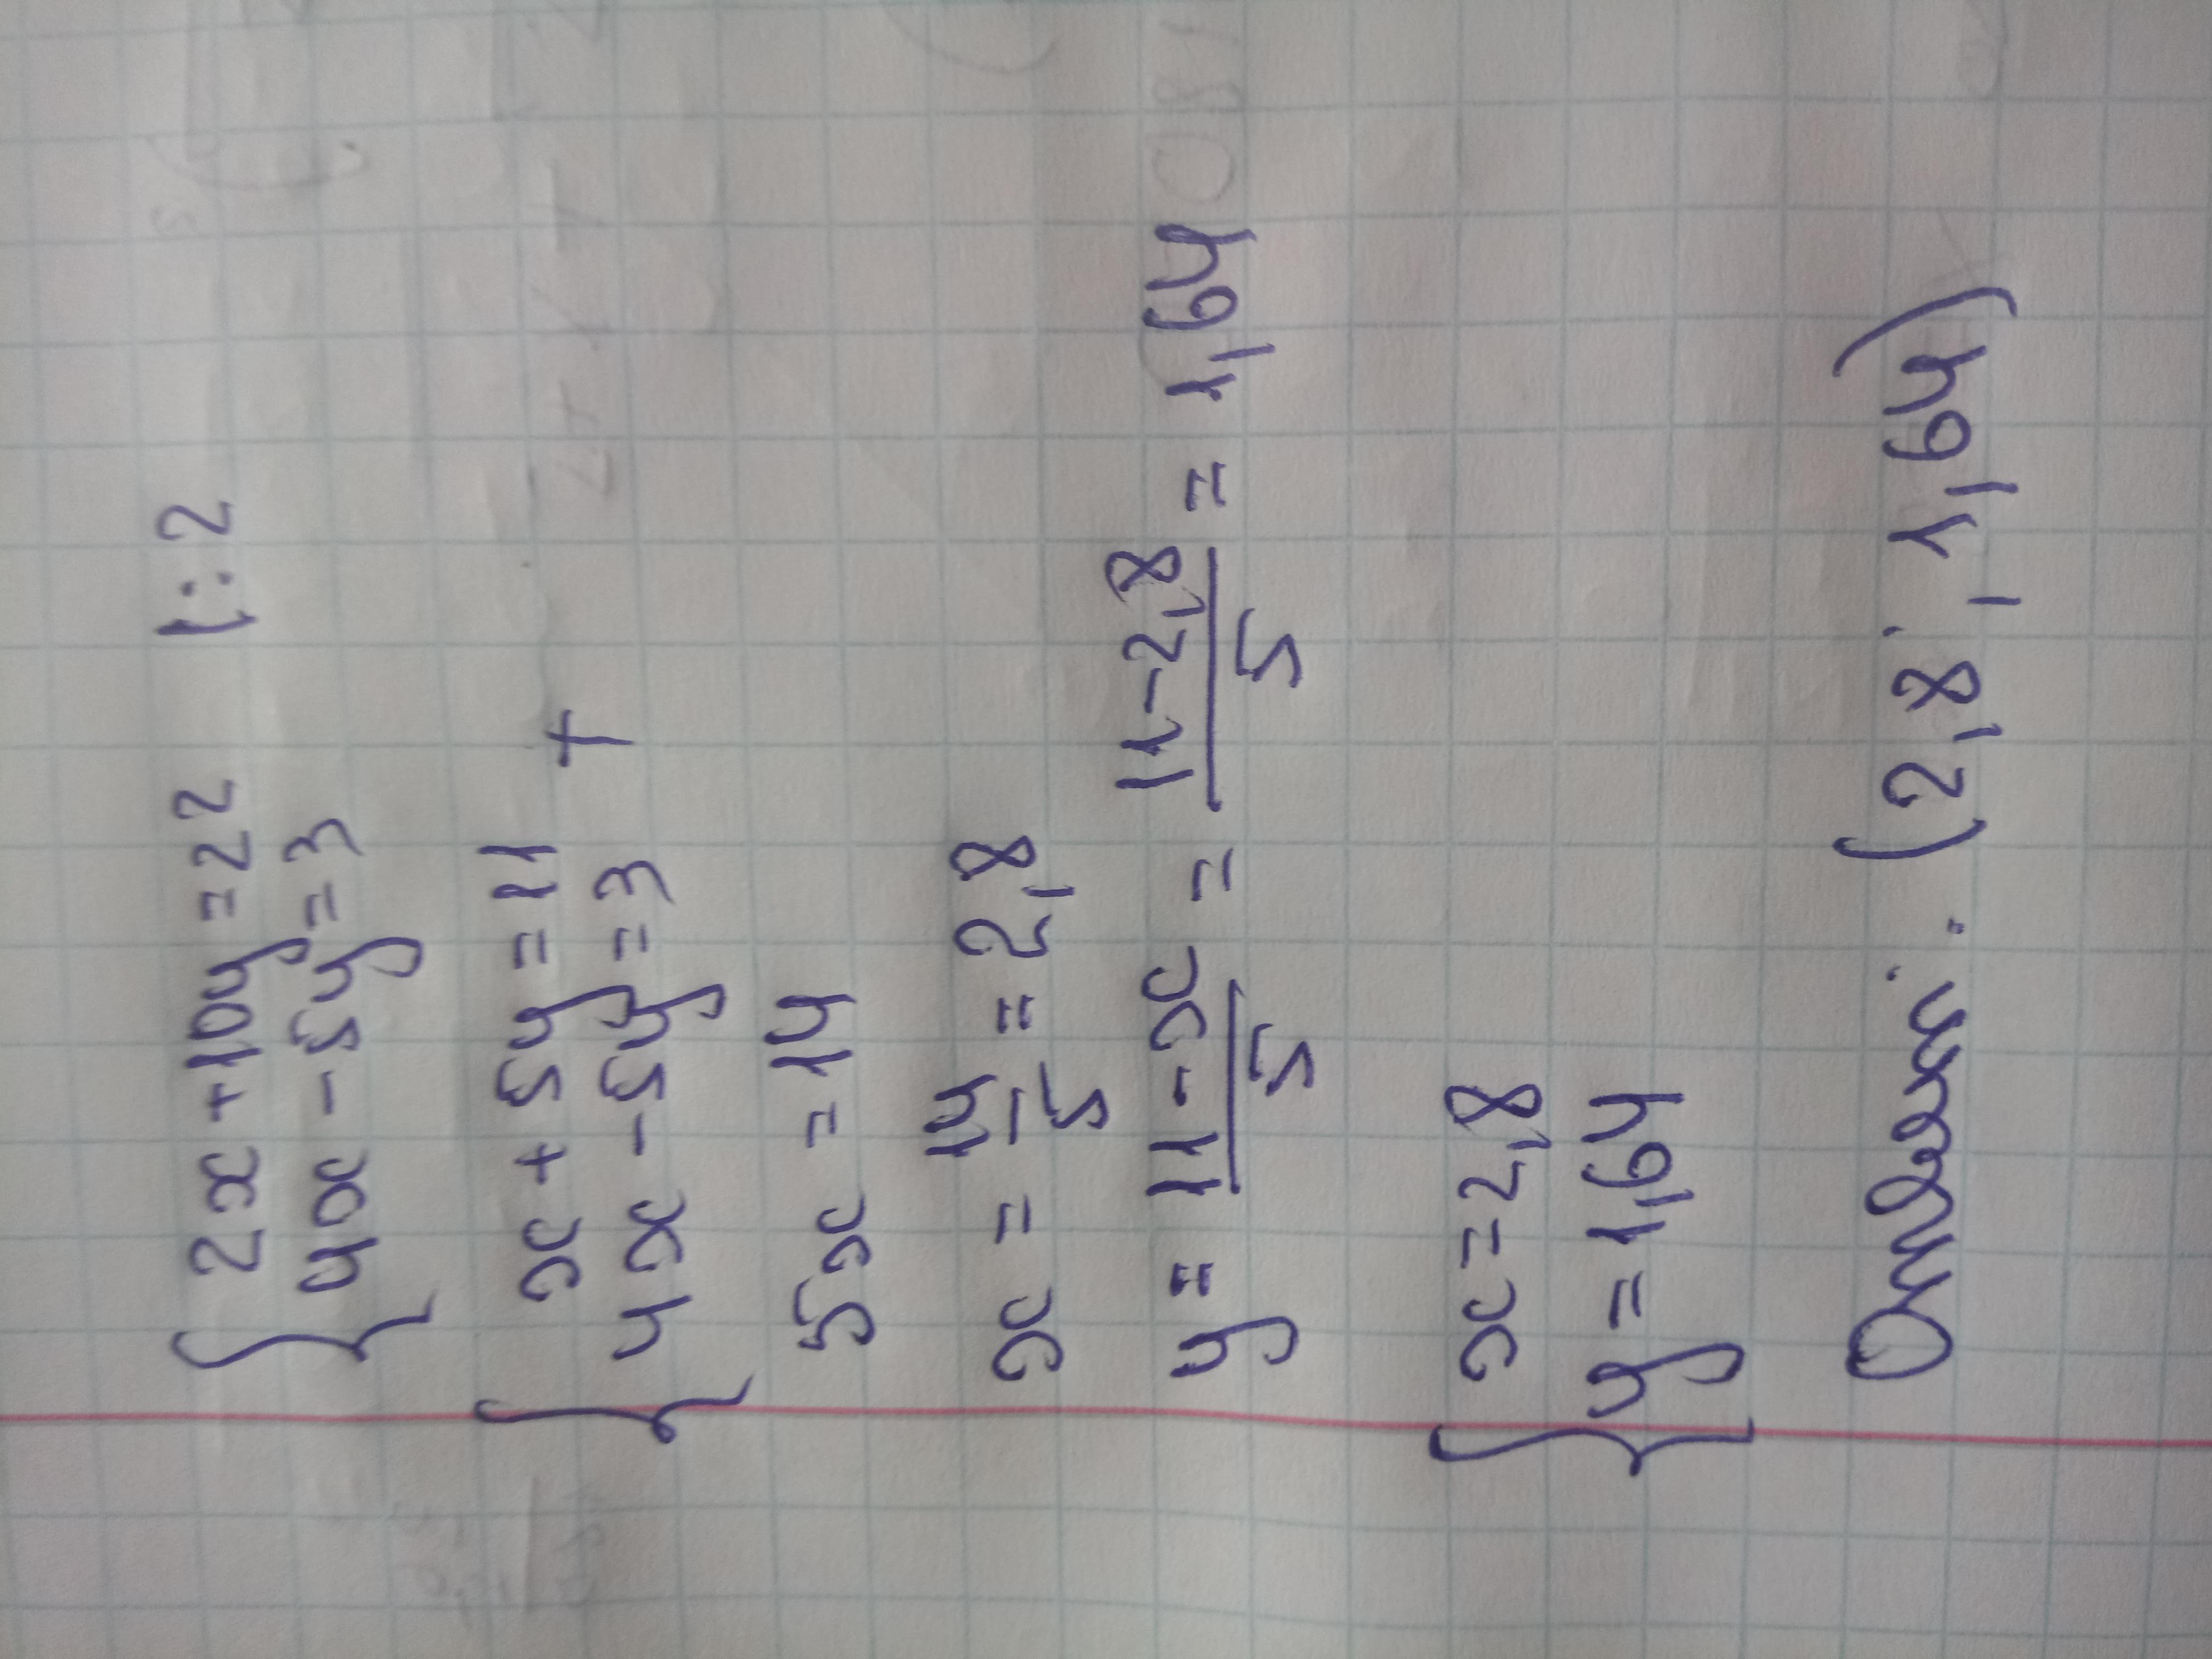 2x + 10y = 22 |: 2
4x - 5y = 3
x + 5y = 11
4x - 5y = 3 +
5x = 14
x = 14/5 = 2,8
y = 11 - x/5 = 11 - 2,8/5 = 1,64
x = 2,8
y = 1,64
Ответ: (2,8; 1,64)